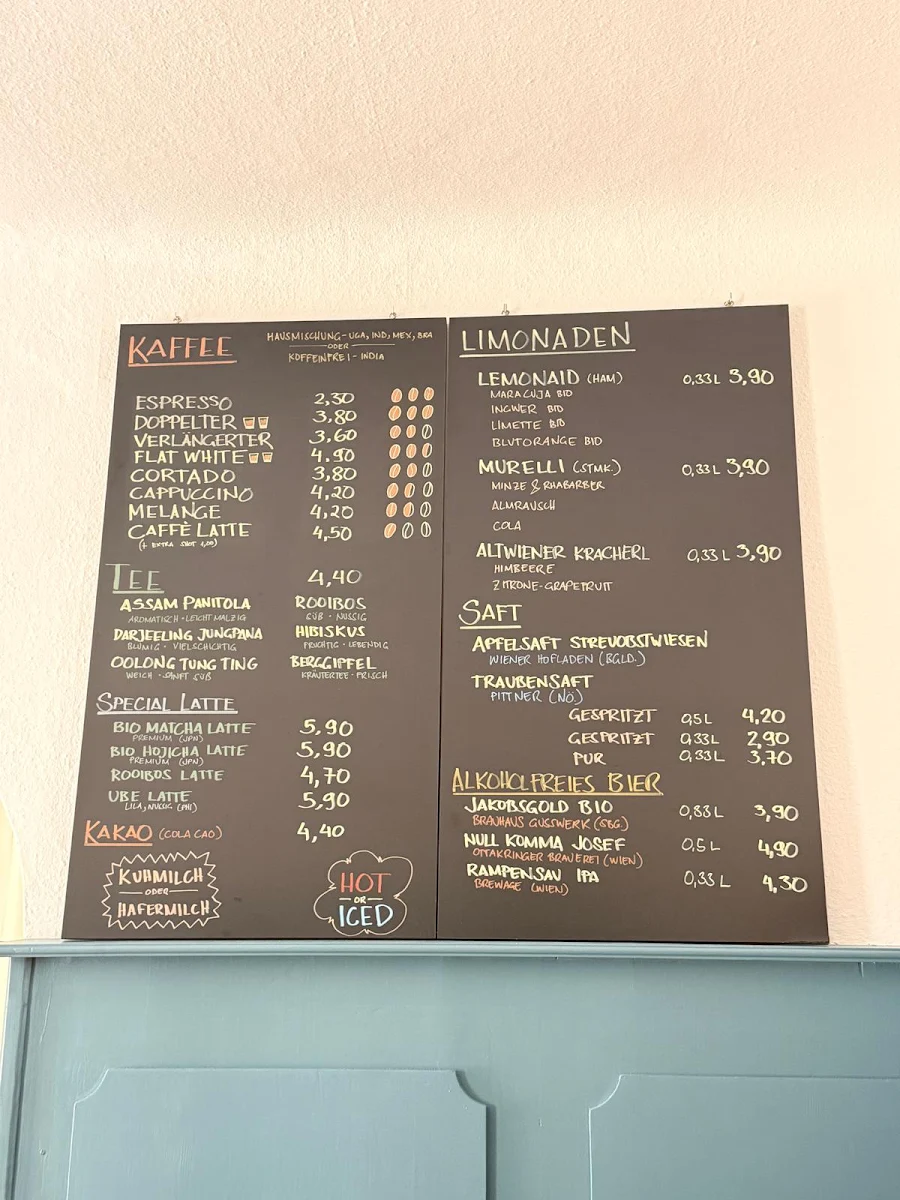 KAFFEE
HAUSMISCHUNG - UGA, IND, MEX, BRA
ODER
KOFFEINFREI - INDIA
ESPRESSO 2,30
DOPPELTER 3,80
VERLÄNGERTER 3,60
FLAT WHITE 4,90
CORTADO 3,80
CAPPUCCINO 4,20
MELANGE 4,20
CAFFÈ LATTE 4,50
(+ EXTRA SHOT 1,00)
TEE 4,40
ASSAM PANITOLA
AROMATISCH · LEICHT MALZIG
DARJEELING JUNGPANA
BLUMIG · VIELSCHICHTIG
OOLONG TUNG TING
WEICH · SANFT SÜß
ROOIBOS
SÜß · NUSSIG
HIBISKUS
FRUCHTIG · LEBENDIG
BERGGIPFEL
KRÄUTERTEE · FRISCH
SPECIAL LATTE
BIO MATCHA LATTE 5,90
PREMIUM (JPN)
BIO HOJICHA LATTE 5,90
PREMIUM (JPN)
ROOIBOS LATTE 4,70
UBE LATTE 5,90
LILA, NUSSIG (PHI)
KAKAO (COLA CAO) 4,40
KUHMILCH
ODER
HAFERMILCH
HOT
OR
ICED
LIMONADEN
LEMONAID (HAM) 0,33 L 3,90
MARACUJA BIO
INGWER BIO
LIMETTE BIO
BLUTORANGE BIO
MURELLI (STMK.) 0,33 L 3,90
MINZE & RHABARBER
ALMRAUSCH
COLA
ALTWIENER KRACHERL 0,33 L 3,90
HIMBEERE
ZITRONE-GRAPEFRUIT
SAFT
APFELSAFT STREUOBSTWIESEN
WIENER HOFLADEN (BGLD.)
TRAUBENSAFT
PITTNER (NÖ.)
GESPRITZT 0,5 L 4,20
GESPRITZT 0,33 L 2,90
PUR 0,33 L 3,70
ALKOHOLFREIES BIER
JAKOBSGOLD BIO 0,33 L 3,90
BRAUHAUS GUSSWERK (SBG.)
NULL KOMMA JOSEF 0,5 L 4,90
OTTAKRINGER BRAUEREI (WIEN)
RAMPENSAU IPA 0,33 L 4,30
BREWAGE (WIEN)